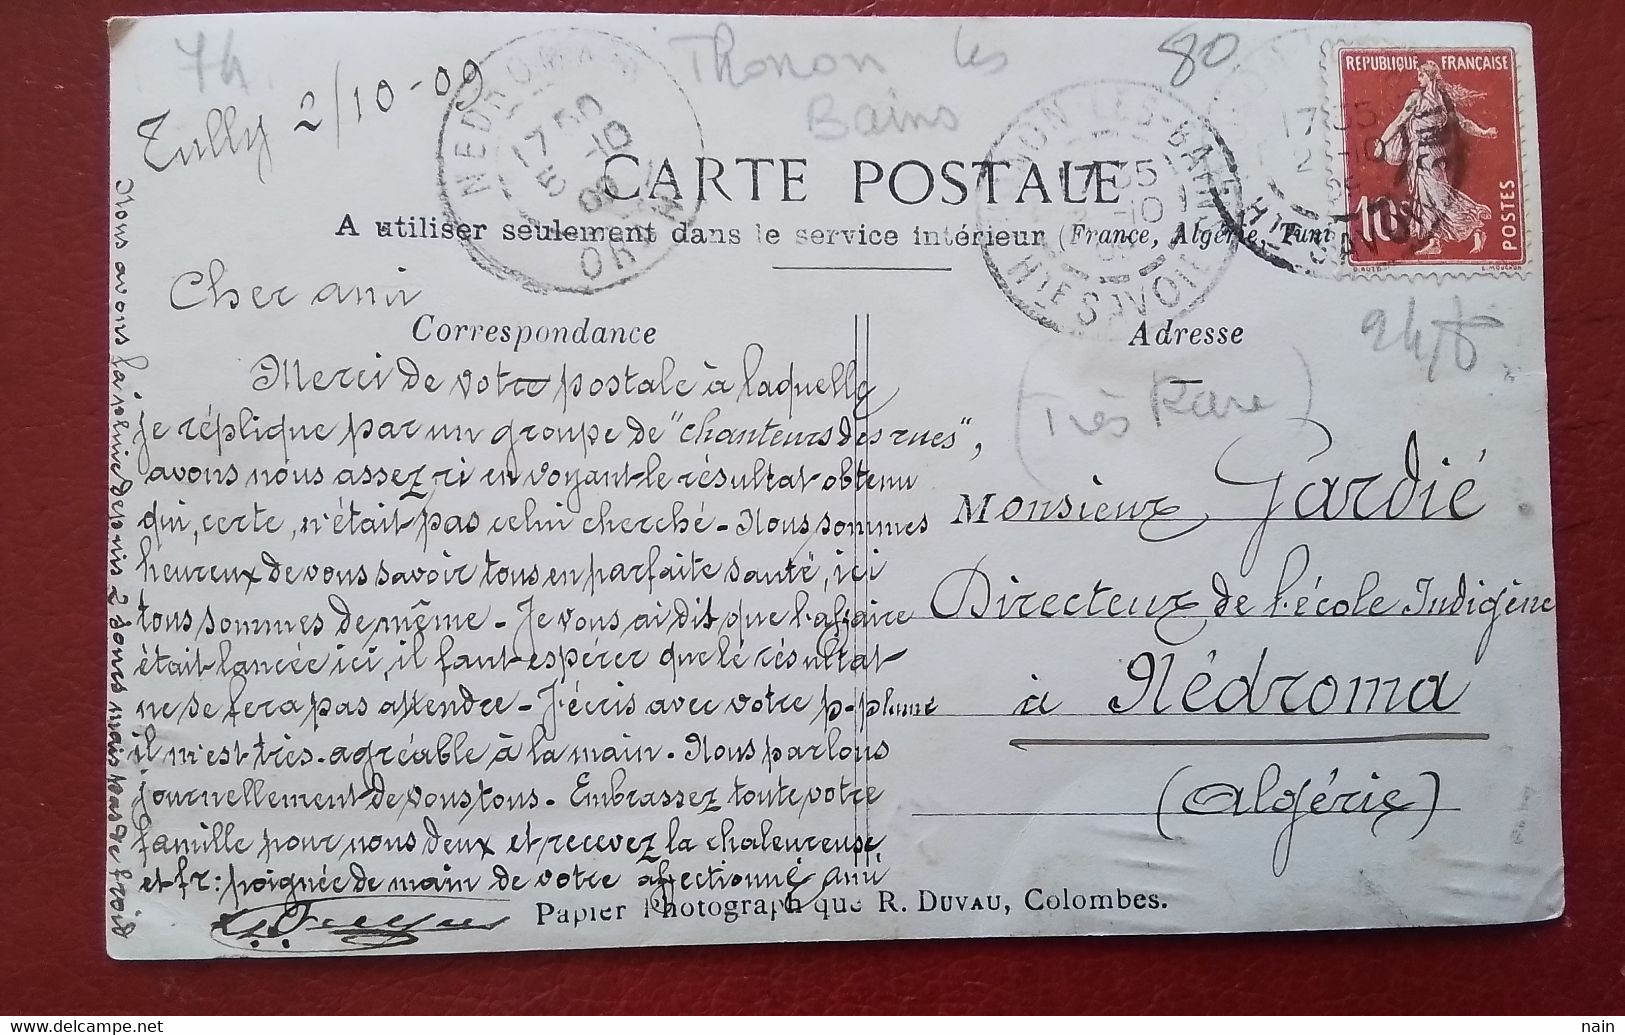 74
Thonon les
Bains
80
Tully 2/10-09
NEDROMAH
17 30
5 -10
09
ORAN
THONON-LES-BAINS
17 35
2 -10
09
HTE SAVOIE
REPUBLIQUE FRANÇAISE
10c
POSTES
O. ROTY E. MOUCHON
CARTE POSTALE
A utiliser seulement dans le service intérieur (France, Algérie, Tuni
Cher ami
Correspondance
Merci de votre postale à laquelle
je réplique par un groupe de "chanteurs des rues",
avons nous assez ri en voyant le résultat obtenu
qui, certe, n'était pas celui cherché - Nous sommes
heureux de vous savoir tous en parfaite santé, ici
tous sommes de même - Je vous ai dit que l'affaire
était lancée ici, il faut espérer que le résultat
ne se fera pas attendre - J'écris avec votre p-plume
il m'est très agréable à la main. Nous parlons
journellement de vous tous. Embrassez toute votre
famille pour nous deux et recevez la chaleureuse
et fr: poignée de main de votre affectionné ami
Nous avons la pluie depuis 2 jours mais pas de froid
Adresse
24/8
(Très Rare)
Monsieur Gardié
Directeur de l'école Indigène
à Nédroma
(Algérie)
Papier Photographique R. DUVAU, Colombes.